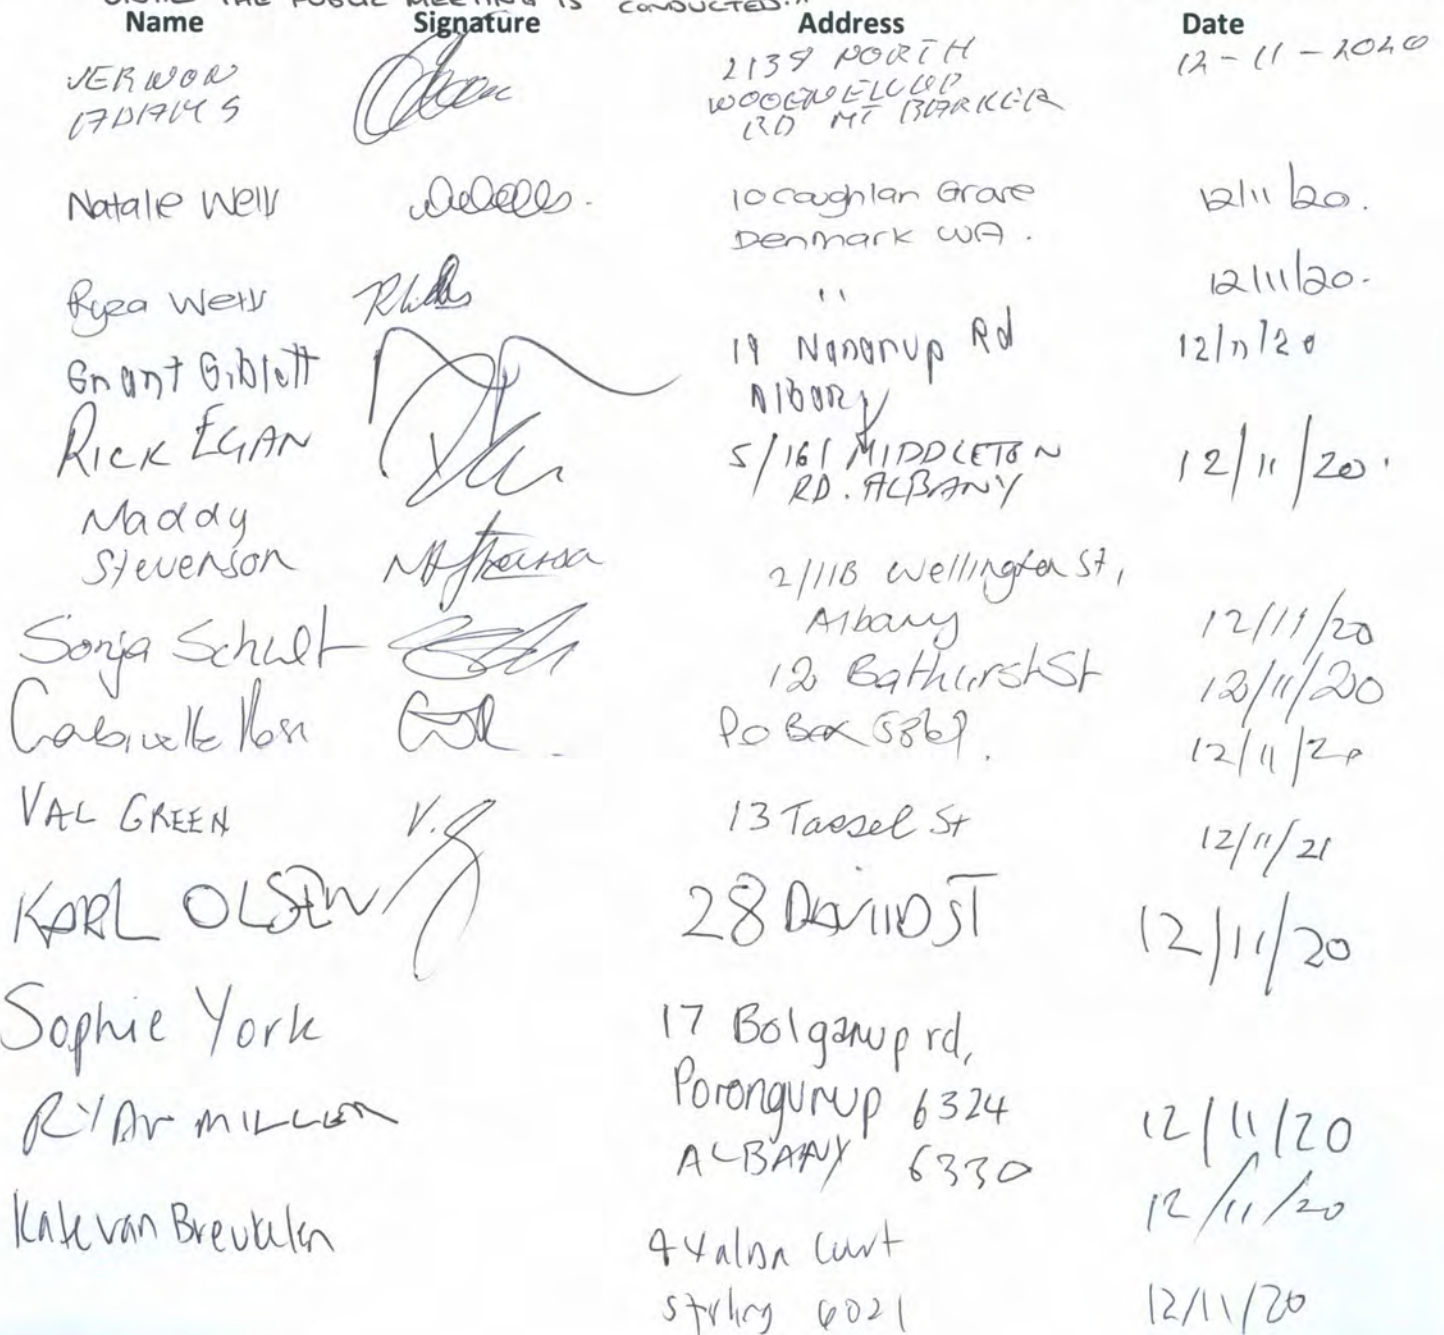 THE PUBLIC MEETING IS CONDUCTED."
Name Signature Address Date
VERNON 2139 NORTH 12-11-2020
ADAMS WOOGENELLUP
RD MT BARKER
Natalie Wells 10 Coughlan Grove 12/11/20.
Denmark WA.
Ryza Wells " 12/11/20.
Grant Giblett 19 Nanarup Rd 12/11/20
Albany
RICK EGAN 5/161 MIDDLETON 12/11/20.
RD. ALBANY
Maddy
Stevenson 2/11B Wellington St,
Albany 12/11/20
Sonja Schult 12 Bathurst St 12/11/20
Gabrielle PO Box 12/11/20
VAL GREEN V.G 13 Tassel St 12/11/21
KARL OLSEN 28 DAVIID ST 12/11/20
Sophie York 17 Bolganup rd,
Porongurup 6324 12/11/20
RYAN MILLER ALBANY 6330 12/11/20
Kate van Breukelen 4 Court
Stirling 6021 12/11/20